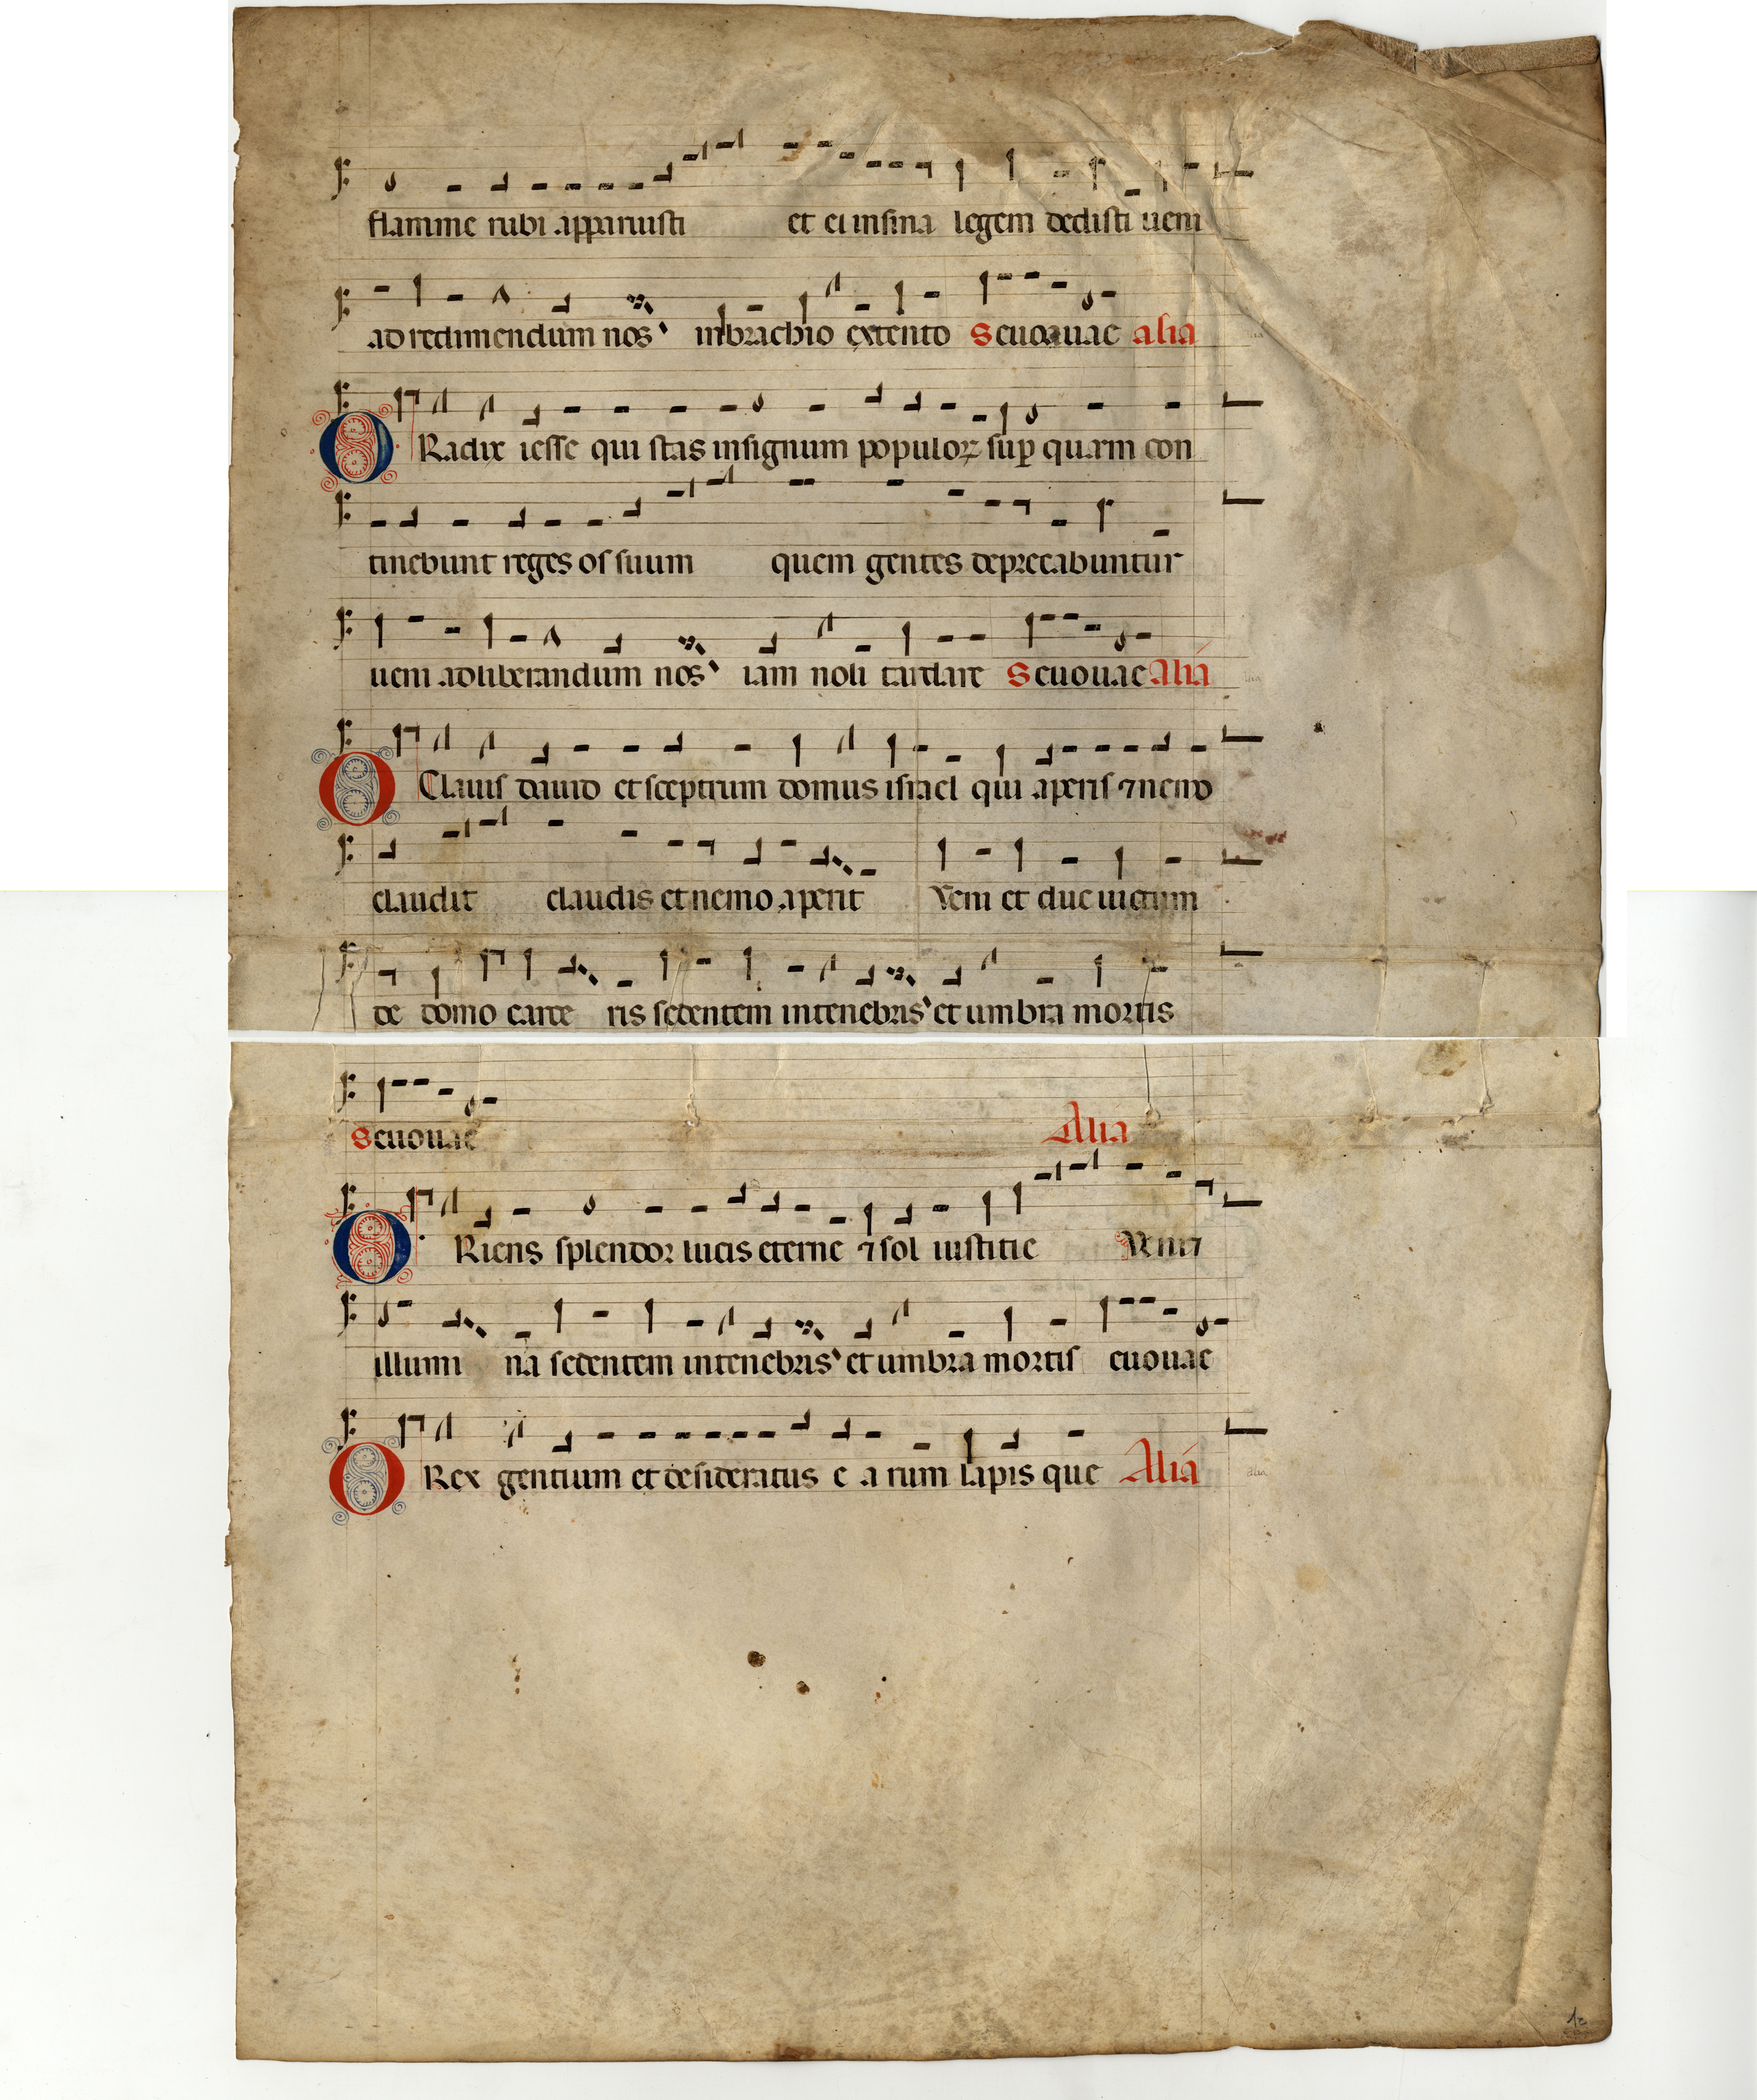 flamme rubi apparuisti et ei insina legem dedisti ueni
ad redimendum nos inbrachio extento Seuouae alia
O Radix iesse qui stas insignum populoꝝ suꝑ quem con
tinebunt reges os suum quem gentes deprecabuntur
ueni adliberandum nos iam noli tardare Seuouae Alia
O Clauis dauid et sceptrum domus israel qui aperis ⁊ nemo
claudit claudis et nemo aperit Veni et duc uictum
de domo carce ris sedentem intenebris et umbra mortis
Seuouae Alia
O Riens splendor lucis eterne ⁊ sol iustitie Veni ⁊
illumi na sedentem intenebris et umbra mortis euouae
O Rex gentium et desideratus e a rum lapis que Alia